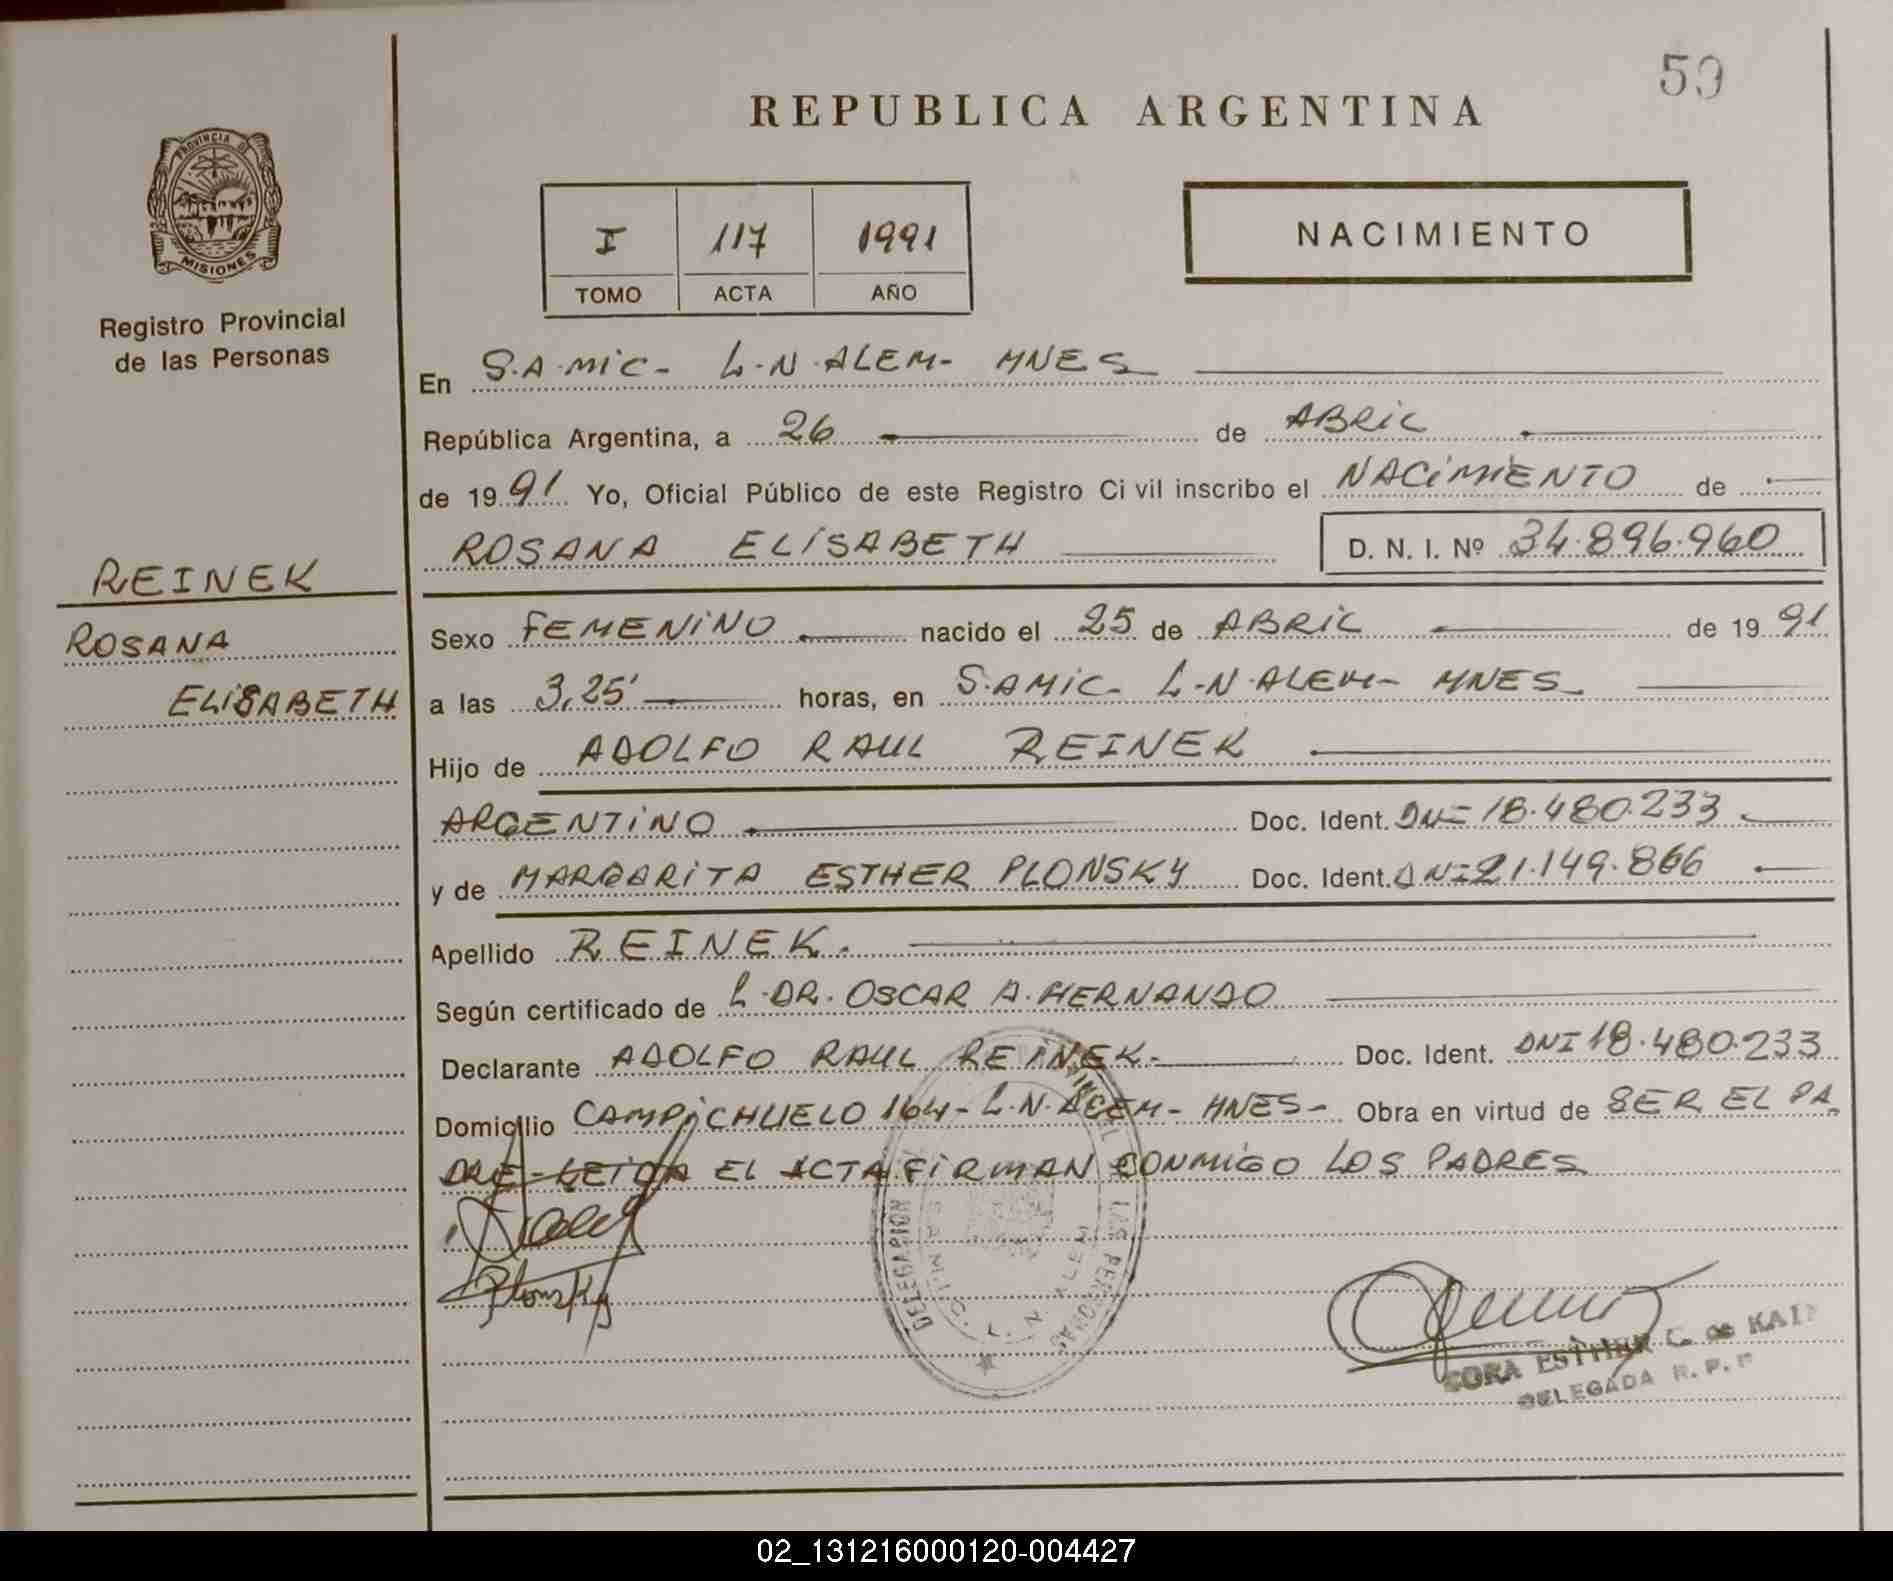 59
REPUBLICA ARGENTINA
PROVINCIA DE
MISIONES
Registro Provincial
de las Personas
I 117 1991
TOMO ACTA AÑO
NACIMIENTO
En S.A.MiC- L.N.ALEM- MNES
República Argentina, a 26 de ABRIL
de 1991 Yo, Oficial Público de este Registro Ci vil inscribo el NACIMIENTO de
ROSANA ELISABETH D. N. I. Nº 34.896.960
REINEK
ROSANA
ELISABETH
Sexo FEMENINO nacido el 25 de ABRIL de 1991
a las 3,25' horas, en S.AMIC- L-N.ALEM- MNES-
Hijo de ADOLFO RAUL REINEK
ARGENTINO Doc. Ident. DNI 18.480.233
y de MARGARITA ESTHER PLONSKY Doc. Ident. DNI 21.149.866
Apellido REINEK.
Según certificado de L.DR. OSCAR A. HERNANDO
Declarante ADOLFO RAUL REINEK- Doc. Ident. DNI 18.480.233
Domicilio CAMPICHUELO 164- L.N.ALEM- MNES- Obra en virtud de SER EL PA
DRE-LEIDA EL ACTA FIRMAN CONMIGO LOS PADRES
Plonsky
DELEGACION LAS PERSONAS
S.A.M.I.C. L. N. ALEM
CORA ESTHER C. de
DELEGADA R. P. P
02_131216000120-004427